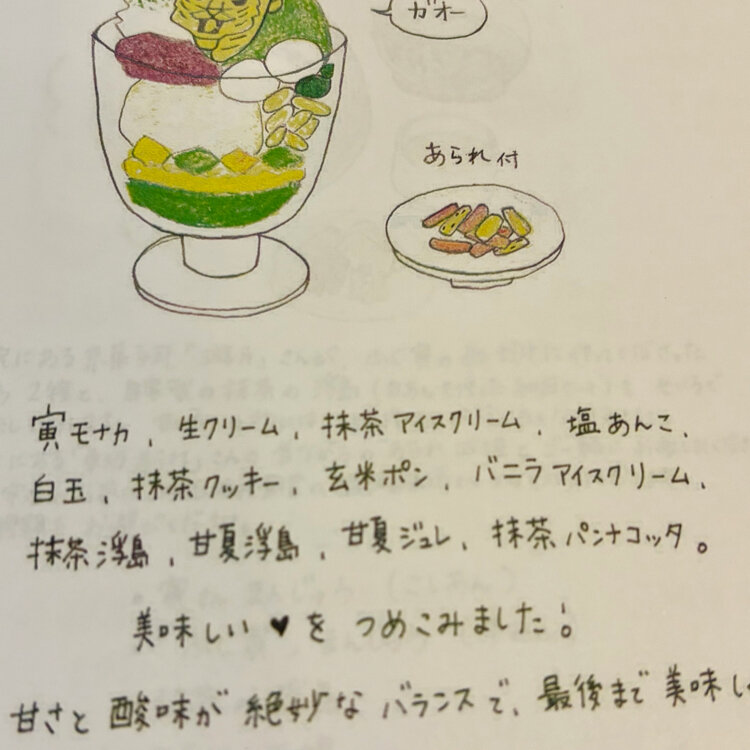 ガオー
あられ付
寅モナカ、生クリーム、抹茶アイスクリーム、塩あんこ、
白玉、抹茶クッキー、玄米ポン、バニラアイスクリーム、
抹茶浮島、甘夏浮島、甘夏ジュレ、抹茶パンナコッタ。
美味しい♥をつめこみました!。
甘さと酸味が絶妙なバランスで、最後まで美味し